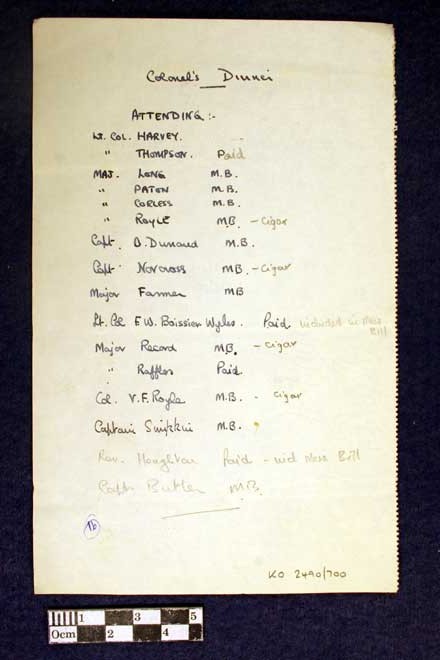 Colonel's Dinner
ATTENDING:-
Lt. Col. HARVEY.
" THOMPSON. Paid
MAJ. LONG M.B.
" PATON M.B.
" CORLESS M.B.
" ROYLE M.B. - Cigar
Capt. D. Durrand M.B.
Capt. Norcross M.B. - Cigar
Major Farmer MB
Lt. Col F.W. Boissier Wyles. Paid. included in Mess Bill
Major Record M.B. - Cigar
" Raffles Paid.
Col. V.F. Royle M.B. - Cigar
Captain Simpkin M.B.
Rev. Houghton Paid - incl Mess Bill
Capt. Butler M.B.
16
KO 2490/700
0cm 1 2 3 4 5